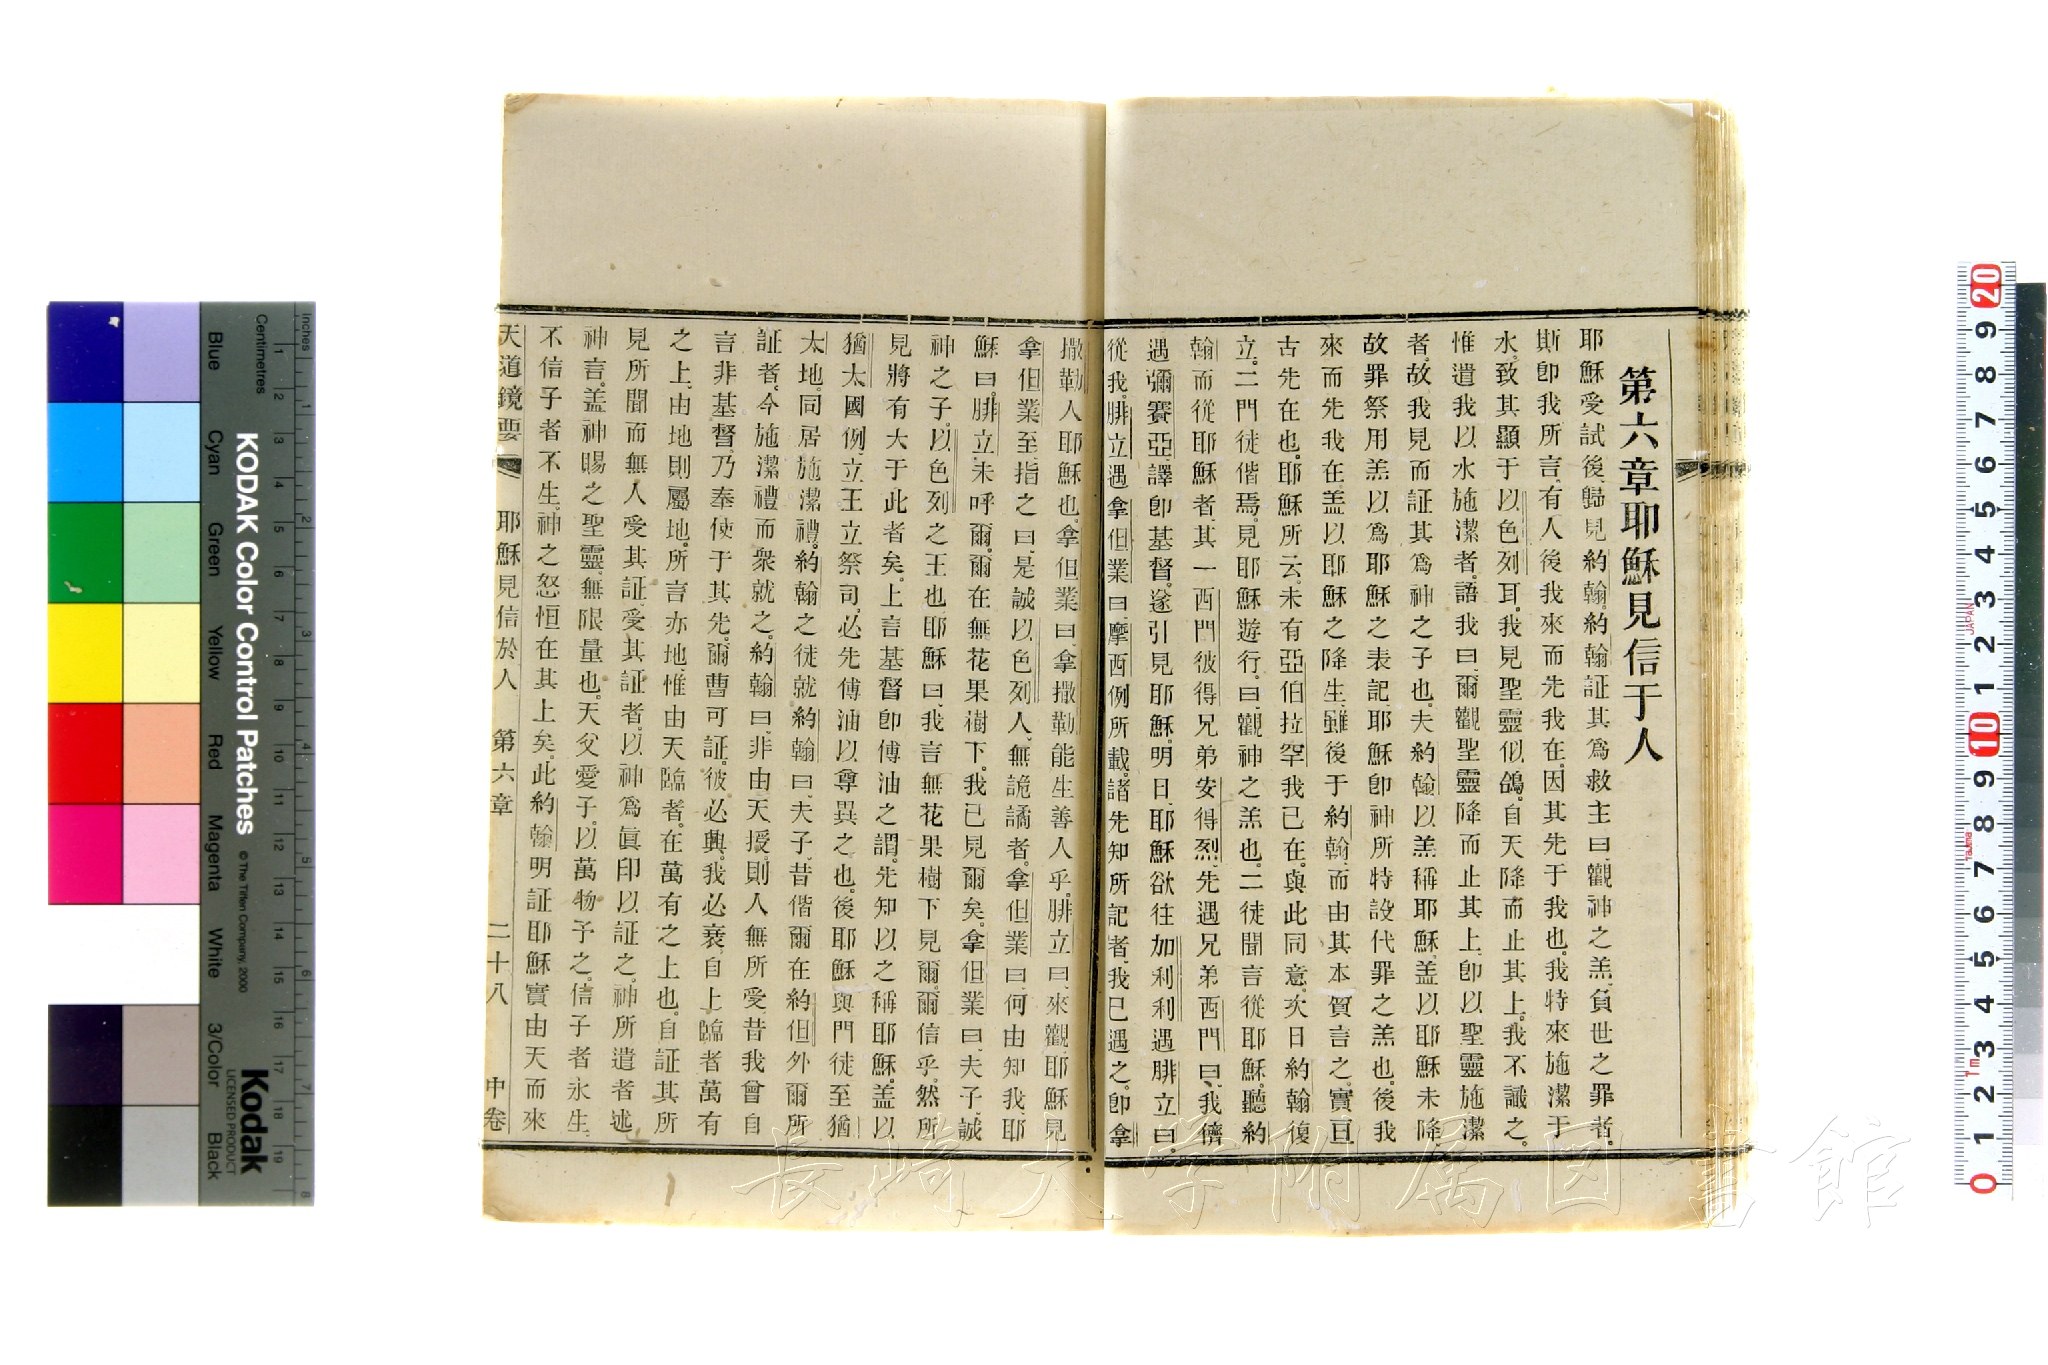 第六章耶穌見信于人
耶穌受試後、歸見約翰。約翰証其爲救主曰、觀神之羔、負世之罪者。
斯卽我所言、有人後我來而先我在、因其先于我也。我特來施潔于
水、致其顯于以色列耳。我見聖靈似鴿、自天降而止其上。我不識之。
惟遣我以水施潔者、語我曰、爾觀聖靈降而止其上、卽以聖靈施潔
者、故我見而証其爲神之子也。夫約翰以羔稱耶穌、盖以耶穌未降、
故罪祭用羔以爲耶穌之表記、耶穌卽神所特設代罪之羔也。後我
來而先我在、盖以耶穌之降生、雖後于約翰、而由其本質言之、實亘
古先在也。耶穌所云、未有亞伯拉罕我已在、與此同意。次日約翰復
立。二門徒偕焉。見耶穌遊行。曰、觀神之羔也。二徒聞言從耶穌。聽約
翰而從耶穌者、其一西門彼得兄弟安得烈、先遇兄弟西門曰、我儕
遇彌賽亞、譯卽基督。遂引見耶穌。明日、耶穌欲往加利利遇腓立曰、
從我。腓立遇拿但業曰、摩西例所載、諸先知所記者、我已遇之、卽拿
撒勒人耶穌也。拿但業曰、拿撒勒能生善人乎。腓立曰、來觀。耶穌見
拿但業至、指之曰、是誠以色列人、無詭譎者。拿但業曰、何由知我。耶
穌曰、腓立未呼爾。爾在無花果樹下。我已見爾矣。拿但業曰、夫子、誠
神之子、以色列之王也。耶穌曰、我言無花果樹下見爾、爾信乎。然所
見將有大于此者矣。上言基督卽傅油之謂。先知以之稱耶穌。盖以
猶太國例、立王立祭司、必先傅油以尊異之也。後耶穌與門徒至猶
太地、同居施潔禮。約翰之徒就約翰曰、夫子、昔偕爾在約但外爾所
証者、今施潔禮而衆就之。約翰曰、非由天授、則人無所受。昔我曾自
言非基督、乃奉使于其先。爾曹可証。彼必興。我必衰、自上臨者、萬有
之上、由地則屬地。所言亦地、惟由天臨者、在萬有之上也。自証其所
見所聞而無人受其証、受其証者、以神爲眞印以証之。神所遣者、述
神言。盖神賜之聖靈、無限量也。天父愛子、以萬物予之。信子者永生、
不信子者不生。神之怒恒在其上矣。此約翰明証耶穌實由天而來
天道鏡要 耶穌見信於人 第六章 二十八 中卷
KODAK Color Control Patches
© The Tiffen Company, 2000
Kodak
LICENSED PRODUCT
Inches
Centimetres
Blue
Cyan
Green
Yellow
Red
Magenta
White
3/Color
Black
1 2 3 4 5 6 7 8
1 2 3 4 5 6 7 8 9 10 11 12 13 14 15 16 17 18 19
20 9 8 7 6 5 4 3 2 1 10 9 8 7 6 5 4 3 2 1 0
JAPAN
Tajima
1m
長崎大学附属図書館